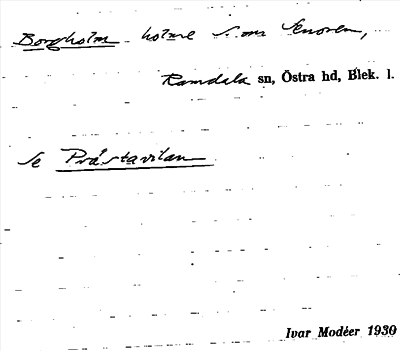 Borgholm holme S. om Senoren,
Ramdala sn, Östra hd, Blek. l.
Se Prästavilan
Ivar Modéer 1930